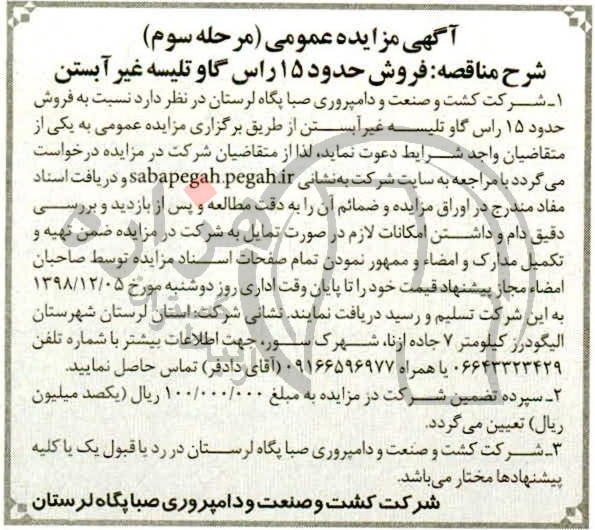 آگهی مزایده عمومی (مرحله سوم)
شرح مناقصه: فروش حدود ۱۵ راس گاو تلیسه غیر آبستن
۱ـ شرکت کشت و صنعت و دامپروری صبا پگاه لرستان در نظر دارد نسبت به فروش
حدود ۱۵ راس گاو تلیسه غیرآبستن از طریق برگزاری مزایده عمومی به یکی از
متقاضیان واجد شرایط دعوت نماید، لذا از متقاضیان شرکت در مزایده درخواست
می‌گردد با مراجعه به سایت شرکت به نشانی sabapegah.pegah.ir و دریافت اسناد
مفاد مندرج در اوراق مزایده و ضمائم آن را به دقت مطالعه و پس از بازدید و بررسی
دقیق دام و داشتن امکانات لازم در صورت تمایل به شرکت در مزایده ضمن تهیه و
تکمیل مدارک و امضاء و ممهور نمودن تمام صفحات اسناد مزایده توسط صاحبان
امضاء مجاز پیشنهاد قیمت خود را تا پایان وقت اداری روز دوشنبه مورخ ۱۳۹۸/۱۲/۰۵
به این شرکت تسلیم و رسید دریافت نمایند. نشانی شرکت: استان لرستان شهرستان
الیگودرز کیلومتر ۷ جاده ازنا، شهرک سور، جهت اطلاعات بیشتر با شماره تلفن
۰۶۶۴۳۳۲۳۴۲۹ یا همراه ۰۹۱۶۶۵۹۶۹۷۷ (آقای دادفر) تماس حاصل نمایید.
۲ـ سپرده تضمین شرکت در مزایده به مبلغ ۱۰۰/۰۰۰/۰۰۰ ریال (یکصد میلیون
ریال) تعیین می‌گردد.
۳ـ شرکت کشت و صنعت و دامپروری صبا پگاه لرستان در رد یا قبول یک یا کلیه
پیشنهادها مختار می‌باشد.
شرکت کشت و صنعت و دامپروری صبا پگاه لرستان